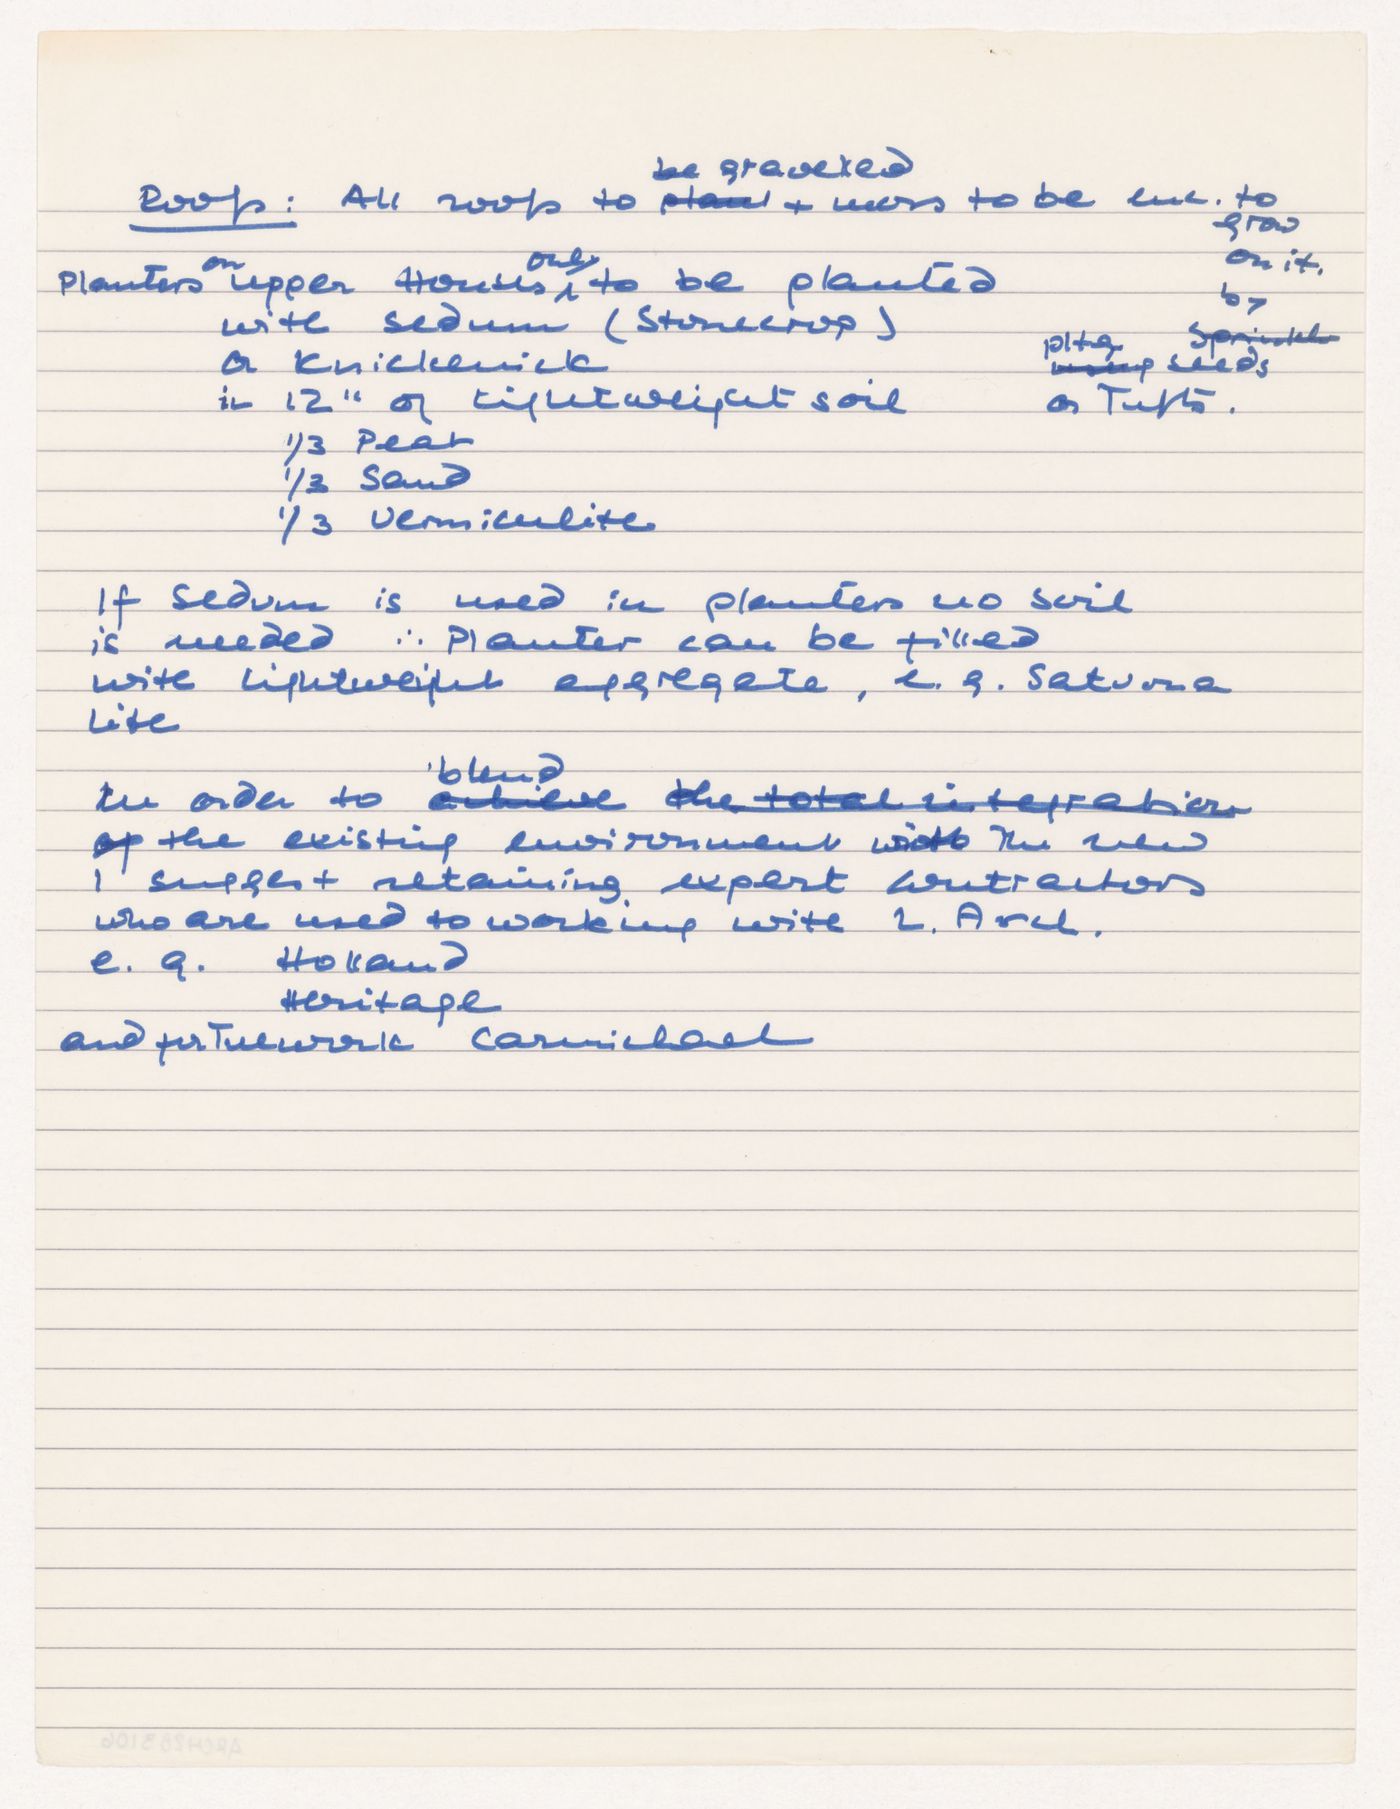 be gravelled
Roofs: All roofs to plant + moss to be enc. to
grow
on it.
by
Sprinkle
pltg
using seeds
or Tufts.
Planters on upper Houses only to be planted
with sedum (Stonecrop)
or Knickenick
in 12" of Lightweight soil
1/3 Peat
1/3 Sand
1/3 Vermiculite
If Sedum is used in planters no soil
is needed ∴ Planter can be filled
with Lightweight aggregate, e.g. Saturna
Lite
blend
In order to achieve the total integration
of the existing environment with The new
I suggest retaining expert contractors
who are used to working with L. Arch.
e.g. Holland
Heritage
and for Treework Carmichael
ARCH283106